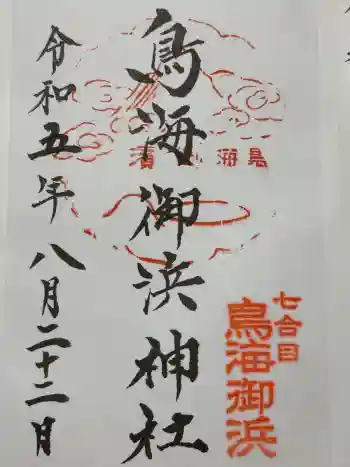 七合目
鳥海御浜
鳥海御浜神社
令和五年八月二十二日